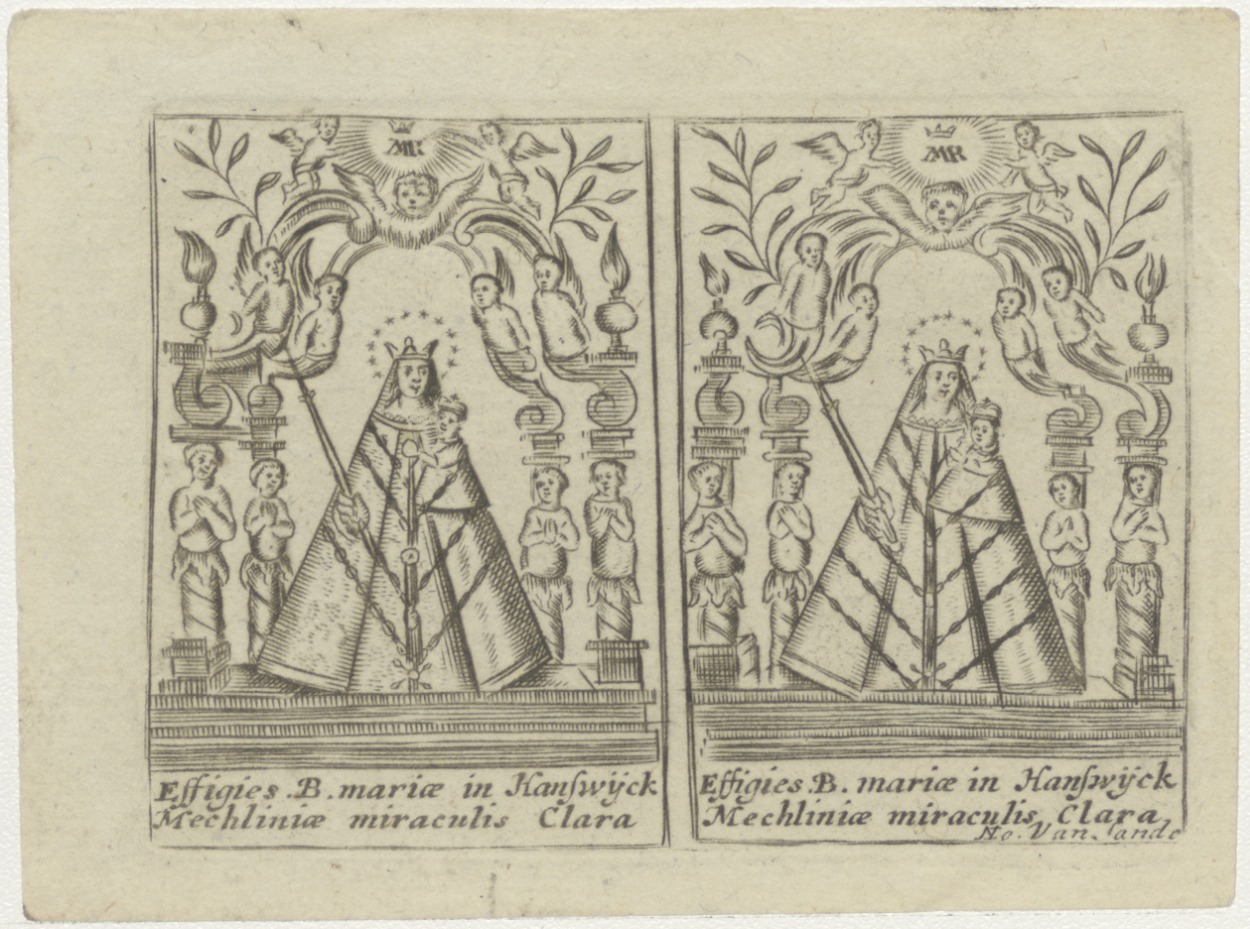 MR
Effigies .B. mariæ in Hanſwijck
Mechliniæ miraculis Clara
MR
Effigies .B. mariæ in Hanſwijck
Mechliniæ miraculis Clara
No. Van Sande